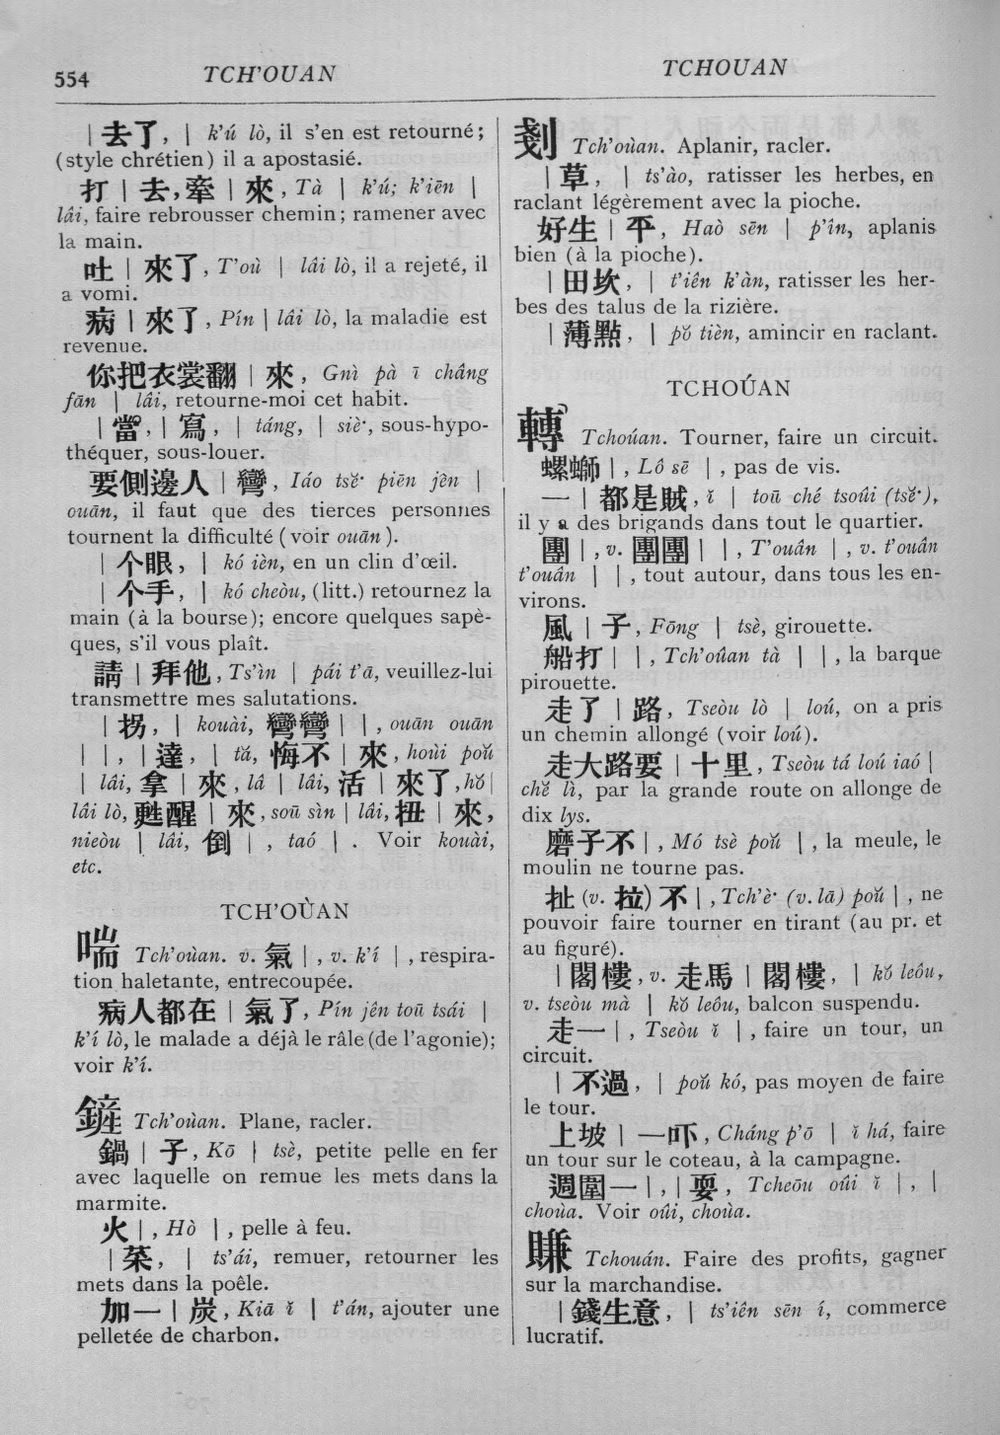 554
TCH'OUAN
TCHOUAN
| 去了, | k'ú lò, il s'en est retourné;
(style chrétien) il a apostasié.
打 | 去, 牽 | 來, Tà | k'ú; k'iēn |
lâi, faire rebrousser chemin; ramener avec
la main.
吐 | 來了, T'où | lâi lò, il a rejeté, il
a vomi.
病 | 來了, Pín | lâi lò, la maladie est
revenue.
你把衣裳翻 | 來, Gnì pà ī chāng
fān | lâi, retourne-moi cet habit.
| 當, | 寫, | táng, | siè·, sous-hypo-
théquer, sous-louer.
要側邊人 | 彎, Iáo tsě· piēn jên |
ouān, il faut que des tierces personnes
tournent la difficulté (voir ouān).
| 个眼, | kó ièn, en un clin d'œil.
| 个手, | kó cheòu, (litt.) retournez la
main (à la bourse); encore quelques sapè-
ques, s'il vous plaît.
請 | 拜他, Ts'ìn | pái t'ā, veuillez-lui
transmettre mes salutations.
| 拐, | kouài, 彎彎 | |, ouān ouān
| |, | 達, | tǎ, 悔不 | 來, hoùi poǔ
| lâi, 拿 | 來, lâ | lâi, 活 | 來了, hǒ |
lâi lò, 甦醒 | 來, soū sìn | lâi, 扭 | 來,
nieòu | lâi, 倒 | , taó | . Voir kouài,
etc.
TCH'OÙAN
喘 Tch'oùan. v. 氣 | , v. k'í | , respira-
tion haletante, entrecoupée.
病人都在 | 氣了, Pín jên toū tsái |
k'í lò, le malade a déjà le râle (de l'agonie);
voir k'í.
鏟 Tch'oùan. Plane, racler.
鍋 | 子, Kō | tsè, petite pelle en fer
avec laquelle on remue les mets dans la
marmite.
火 | , Hò | , pelle à feu.
| 菜, | ts'ái, remuer, retourner les
mets dans la poêle.
加一 | 炭, Kiā ǐ | t'án, ajouter une
pelletée de charbon.
剗 Tch'oùan. Aplanir, racler.
| 草, | ts'ào, ratisser les herbes, en
raclant légèrement avec la pioche.
好生 | 平, Haò sēn | p'în, aplanis
bien (à la pioche).
| 田坎, | t'iên k'àn, ratisser les her-
bes des talus de la rizière.
| 薄點, | pǒ tièn, amincir en raclant.
TCHOÚAN
轉 Tchoúan. Tourner, faire un circuit.
螺螄 | , Lô sē | , pas de vis.
一 | 都是賊, ǐ | toū ché tsoûi (tsě·),
il y a des brigands dans tout le quartier.
團 | , v. 團團 | | , T'ouân | , v. t'ouân
t'ouân | | , tout autour, dans tous les en-
virons.
風 | 子, Fōng | tsè, girouette.
船打 | | , Tch'oûan tà | | , la barque
pirouette.
走了 | 路, Tseòu lò | loú, on a pris
un chemin allongé (voir loú).
走大路要 | 十里, Tseòu tá loú iaó |
chě lì, par la grande route on allonge de
dix lys.
磨子不 | , Mó tsè poǔ | , la meule, le
moulin ne tourne pas.
扯 (v. 拉) 不 | , Tch'è· (v. lā) poǔ | , ne
pouvoir faire tourner en tirant (au pr. et
au figuré).
| 閣樓, v. 走馬 | 閣樓, | kǒ leôu,
v. tseòu mà | kǒ leôu, balcon suspendu.
走一 | , Tseòu ǐ | , faire un tour, un
circuit.
| 不過, | poǔ kó, pas moyen de faire
le tour.
上坡 | 一吓, Cháng p'ō | ǐ há, faire
un tour sur le coteau, à la campagne.
週圍一 | , | 耍, Tcheōu oûi ǐ | , |
choùa. Voir oûi, choùa.
賺 Tchouán. Faire des profits, gagner
sur la marchandise.
| 錢生意, | ts'iên sēn í, commerce
lucratif.